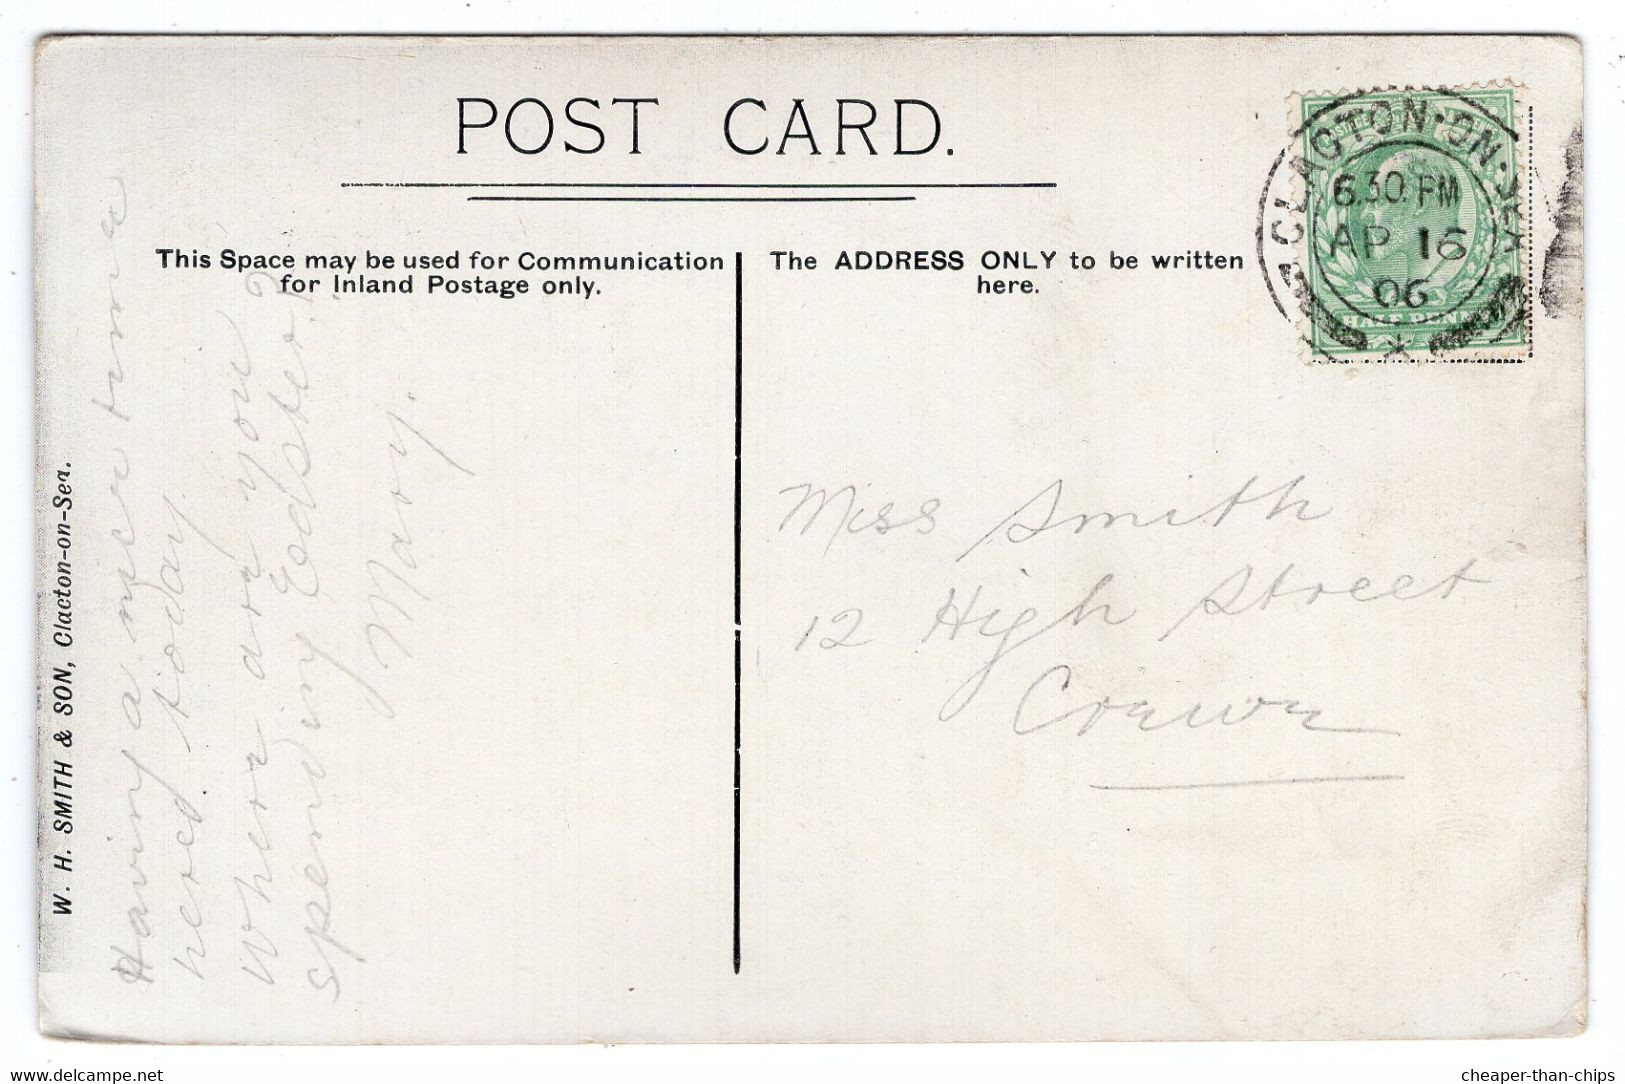 POST CARD.
This Space may be used for Communication
for Inland Postage only.
The ADDRESS ONLY to be written
here.
CLACTON-ON-SEA
6.30.PM
AP 16
06
HALF PENNY
W. H. SMITH & SON, Clacton-on-Sea.
Having a nice time
here today.
Where are you
spending Easter?
Mary.
Miss Smith
12 High Street
Crewe
delcampe.net
cheaper-than-chips